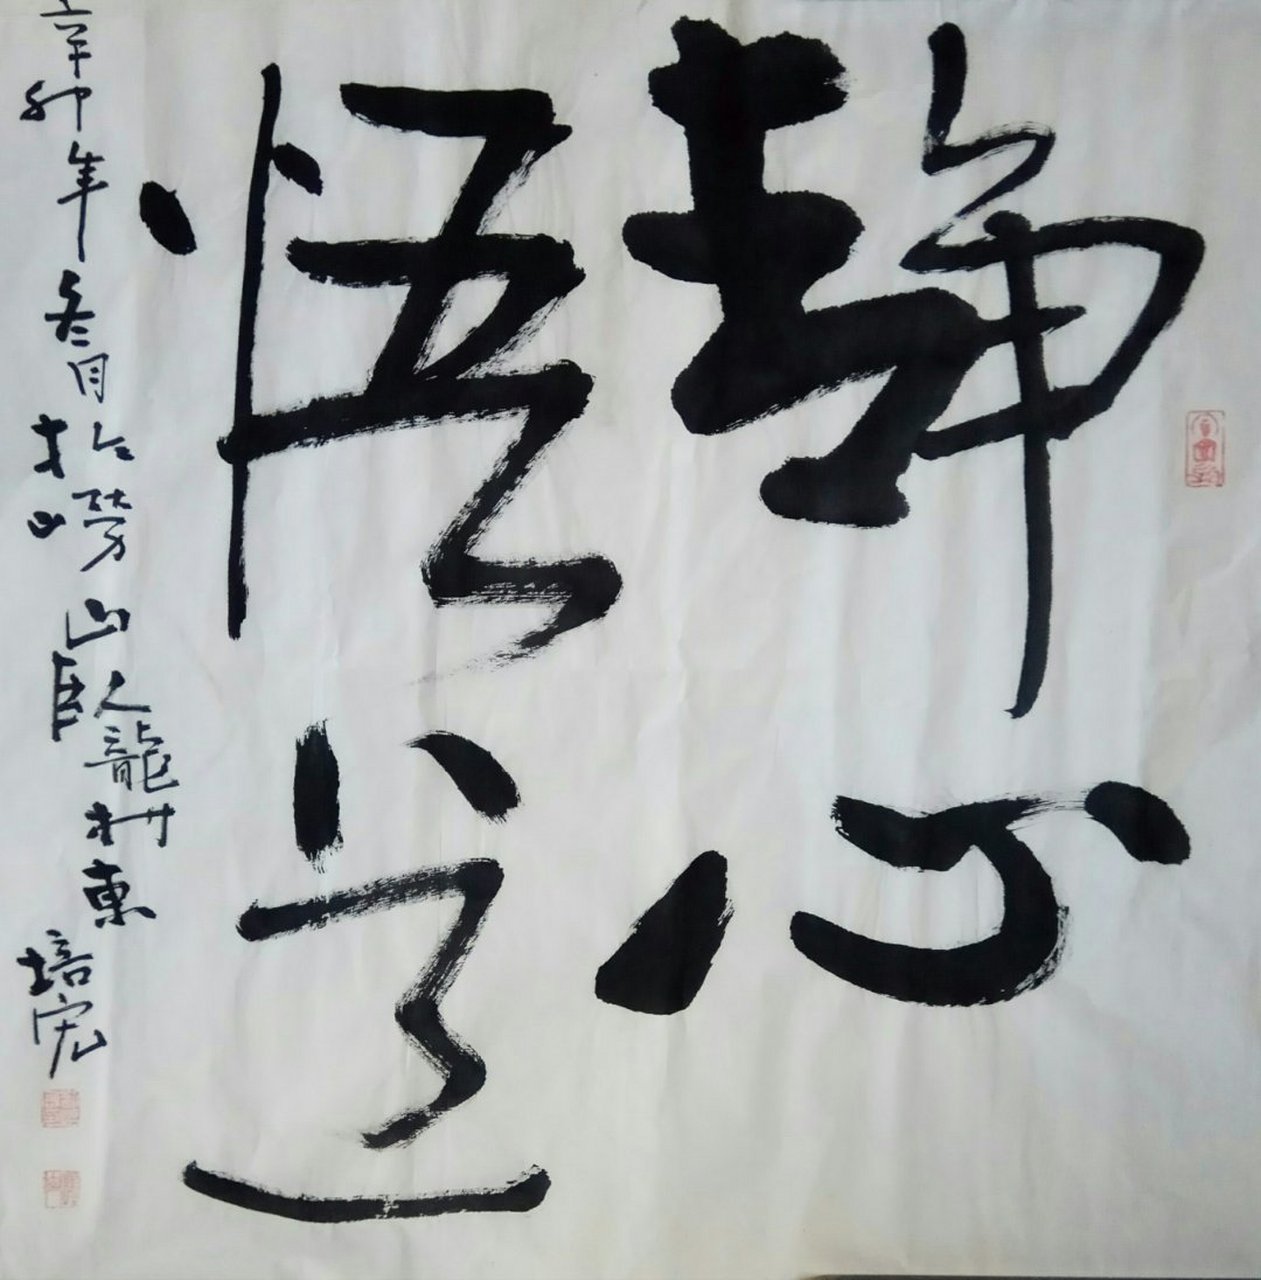 静心
悟道
辛卯年冬月於嶗山臥龍村東培宏